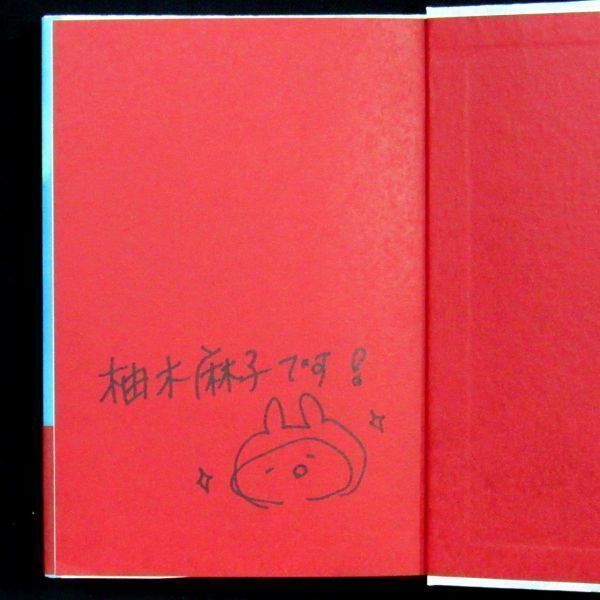 柚木麻子です!